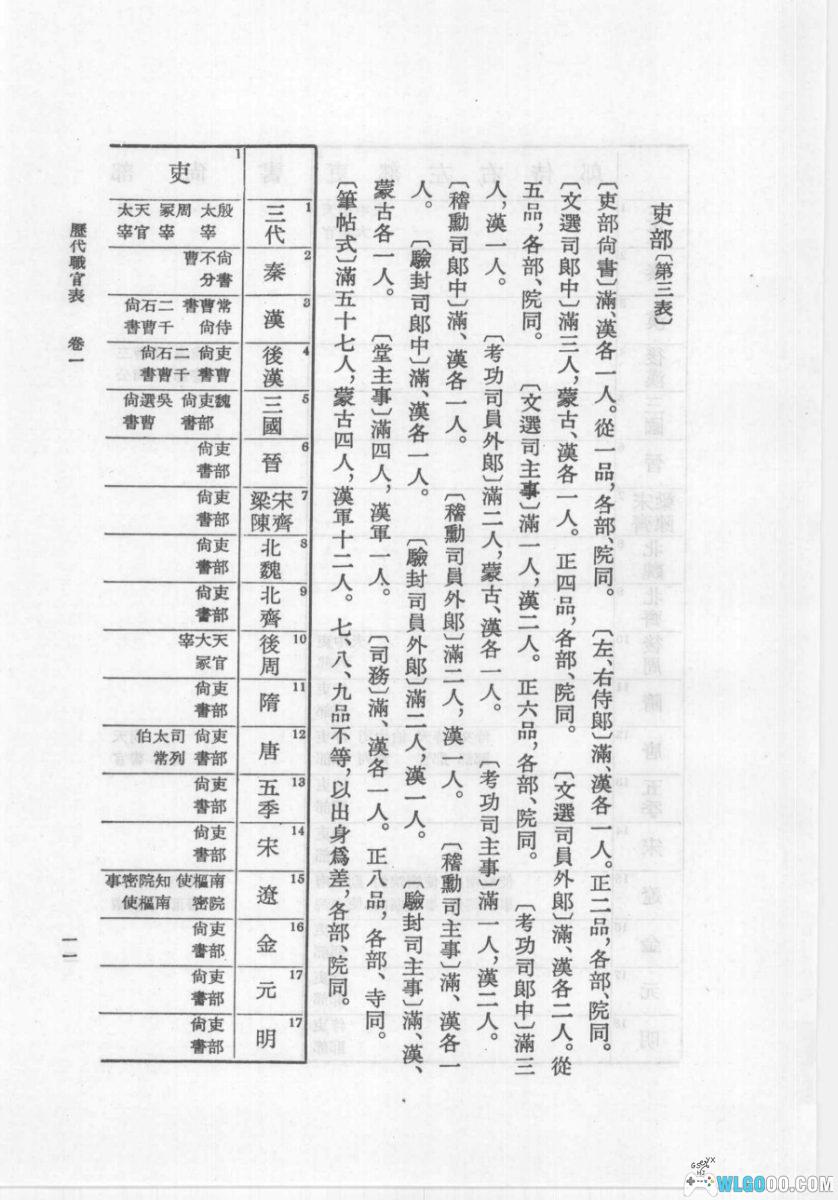 吏部〔第三表〕
〔吏部尙書〕滿、漢各一人。從一品，各部、院同。　〔左、右侍郞〕滿、漢各一人。正二品，各部、院同。
〔文選司郞中〕滿三人，蒙古、漢各一人。正四品，各部、院同。　〔文選司員外郞〕滿、漢各二人。從
五品，各部、院同。　〔文選司主事〕滿一人，漢二人。正六品，各部、院同。　〔考功司郞中〕滿三
人，漢一人。　〔考功司員外郞〕滿二人，蒙古、漢各一人。　〔考功司主事〕滿一人，漢二人。
〔稽勳司郞中〕滿、漢各一人。　〔稽勳司員外郞〕滿二人，漢一人。　〔稽勳司主事〕滿、漢各一
人。　〔驗封司郞中〕滿、漢各一人。　〔驗封司員外郞〕滿二人，漢一人。　〔驗封司主事〕滿、漢、
蒙古各一人。　〔堂主事〕滿四人，漢軍一人。　〔司務〕滿、漢各一人。正八品，各部、寺同。
〔筆帖式〕滿五十七人，蒙古四人，漢軍十二人。七、八、九品不等，以出身爲差，各部、院同。
1 三代
2 秦
3 漢
4 後漢
5 三國
6 晉
7 宋齊
梁陳
8 北魏
9 北齊
10 後周
11 隋
12 唐
13 五季
14 宋
15 遼
16 金
17 元
17 明
1 吏
殷太宰
周冢宰
天官
太宰
尙書
不分
曹
常侍
曹尙
書
二千
石曹
尙書
吏曹
尙書
二千
石曹
尙書
魏吏部
尙書
吳選曹
尙書
吏部
尙書
吏部
尙書
吏部
尙書
吏部
尙書
天官
大冢
宰
吏部
尙書
吏部
尙書
司列
太常
伯
吏部
尙書
吏部
尙書
南院
樞密
使
知南
院樞
密使
事
吏部
尙書
吏部
尙書
吏部
尙書
歷代職官表　卷一
一一
WLGOOO.COM